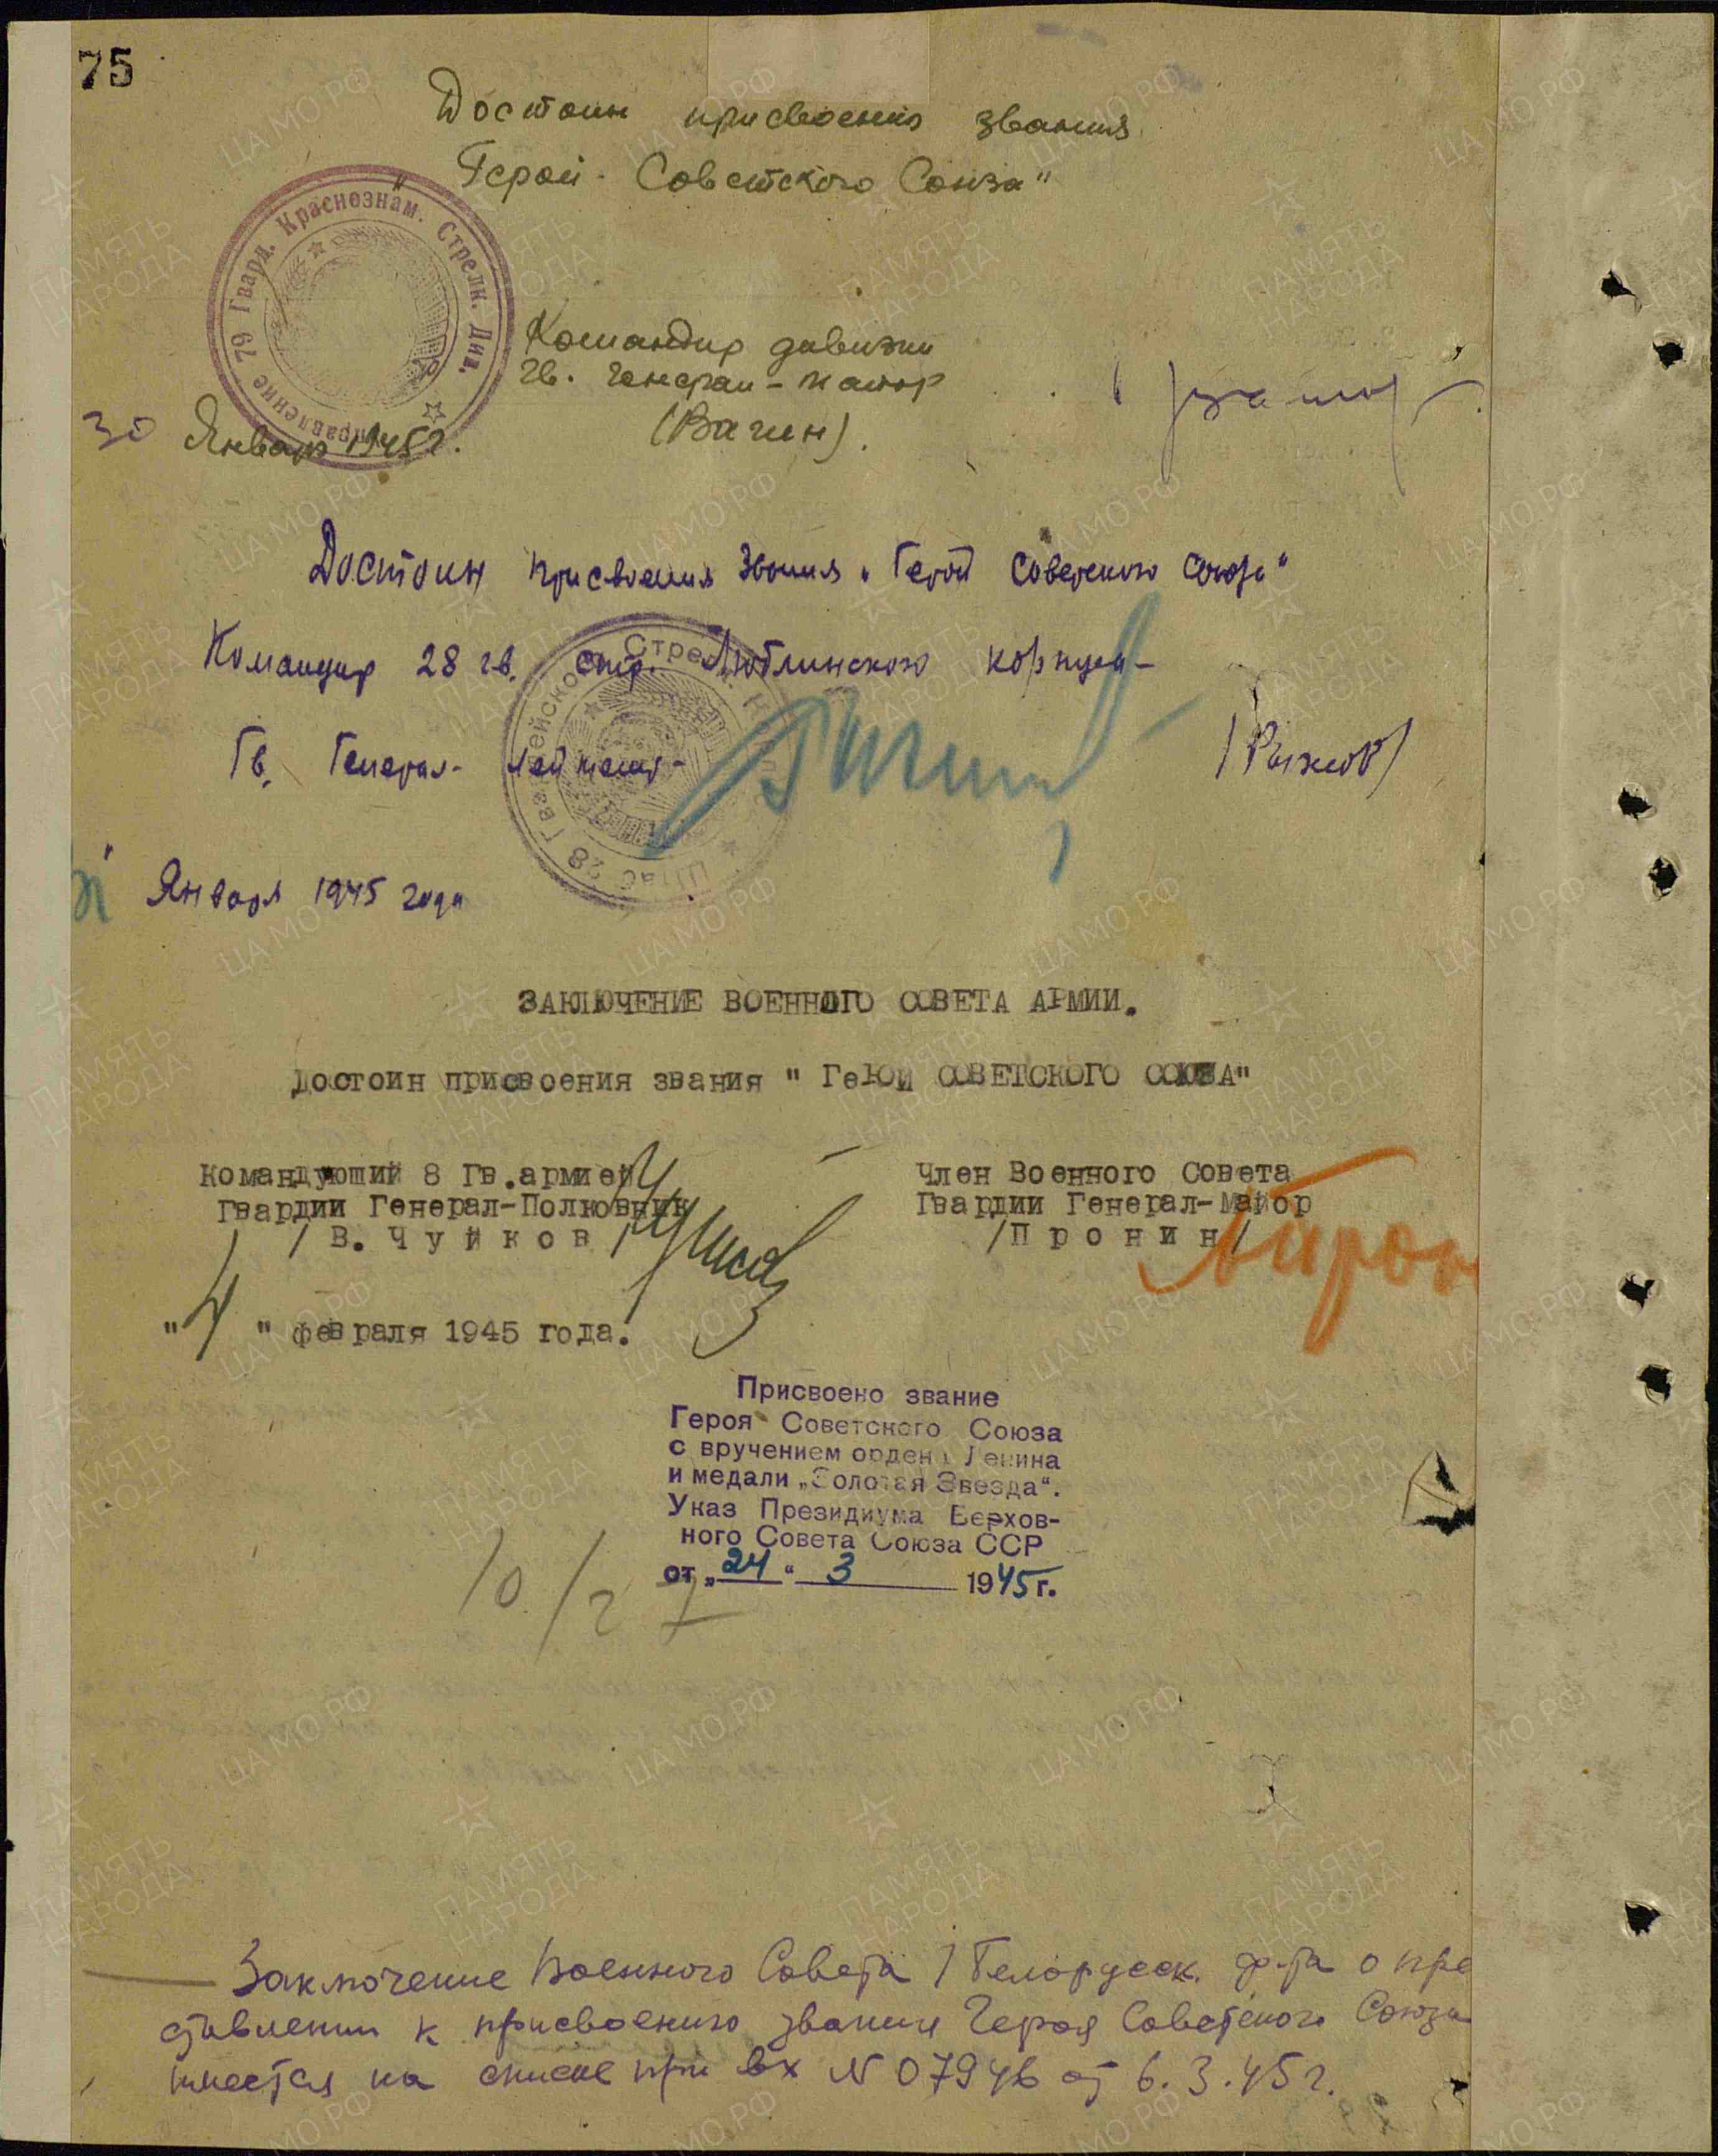 75
Достоин присвоения звания
"Герой Советского Союза"
Управление 79 Гвард. Краснознам. Стрелк. Див.
Командир дивизии
Гв. Генерал-майор
(Вагин).
30 Январь 1945 г.
Достоин присвоения звания "Герой Советского Союза"
Командир 28 гв. стр. Люблинского корпуса-
Гв. Генерал-лейтенант-
/Рыжов/
31 Января 1945 года
ЗАКЛЮЧЕНИЕ ВОЕННОГО СОВЕТА АРМИИ.
Достоин присвоения звания " ГеРОЙ СОВЕТСКОГО СОЮЗА"
Командующий 8 Гв.армией
Гвардии Генерал-Полковник
/ В. Чуйков /
Член Военного Совета
Гвардии Генерал-Майор
/Пронин/
" 4 " февраля 1945 года.
Присвоено звание
Героя Советского Союза
с вручением ордена Ленина
и медали „Золотая Звезда“.
Указ Президиума Верхов-
ного Совета Союза ССР
от „24“ 3 1945 г.
Заключение Военного Совета 1 Белорусск. ф-та о пре
ставлении к присвоению звания Героя Советского Союза
имеется на списке при вх № 07946 от 6.3.45 г.
ПАМЯТЬ НАРОДА
ЦА МО РФ